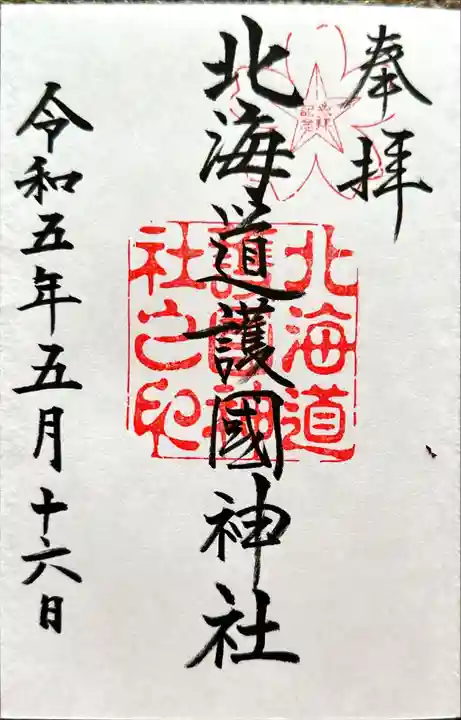 奉拝
北海道護國神社
北海道
護國神
社之印
令和五年五月十六日